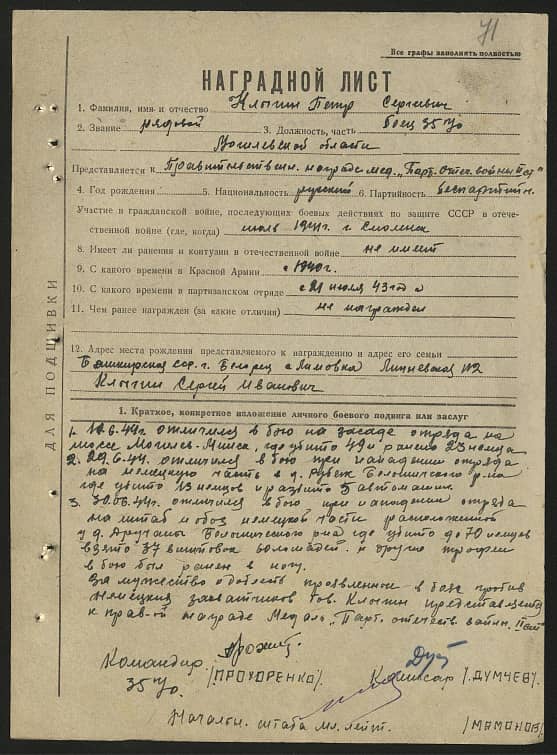 71
Все графы заполнять полностью
НАГРАДНОЙ ЛИСТ
1. Фамилия, имя и отчество Клыгин Петр Сергеевич
2. Звание рядовой 3. Должность, часть боец 35
Могилевской области
Представляется к Правительствен. награде мед. „Парт. отеч. войны II ст"
4. Год рождения 5. Национальность русский 6. Партийность беспартийн.
Участие в гражданской войне, последующих боевых действиях по защите СССР в отече-
ственной войне (где, когда) июль 1941 г. г. Смоленск
8. Имеет ли ранения и контузии в отечественной войне не имеет
9. С какого времени в Красной Армии с 1940 г.
10. С какого времени в партизанском отряде с 21 июля 43 года
11. Чем ранее награжден (за какие отличия) не награжден
12. Адрес места рождения представляемого к награждению и адрес его семьи
Башкирская сср. г. Белорец с Ломовка №2
Клыгин Сергей Иванович
ДЛЯ ПОДШИВКИ
1. Краткое, конкретное изложение личного боевого подвига или заслуг
1. 6.44г. отличился в бою на засаде отряда на
шоссе Могилев-Минск, где убито 49 и ранено 23 немца
2. 29.6.44. отличился в бою при нападении отряда
на немецкую часть в д. Белыничского р-на
где убито 13 немцев и разбито 5 автомашин
3. 30.06.44г. отличился в бою при нападении отряда
на штаб и обоз немецкой части расположенной
у д. Белыничского р-на где убито до 70 немцев
взято 37 винтовок 60 лошадей и другие трофеи
в бою был ранен в ногу.
За мужество и доблесть проявленное в боях против
немецких захватчиков тов. Клыгин представляется
к прав-ой награде Медаль „Парт. отечеств. войны II ст"
Командир /ПРОХОРЕНКО/ Комиссар /ДУМЧЕВ/
35
Начальн. штаба мл. лейт. /МАМОНОВ/